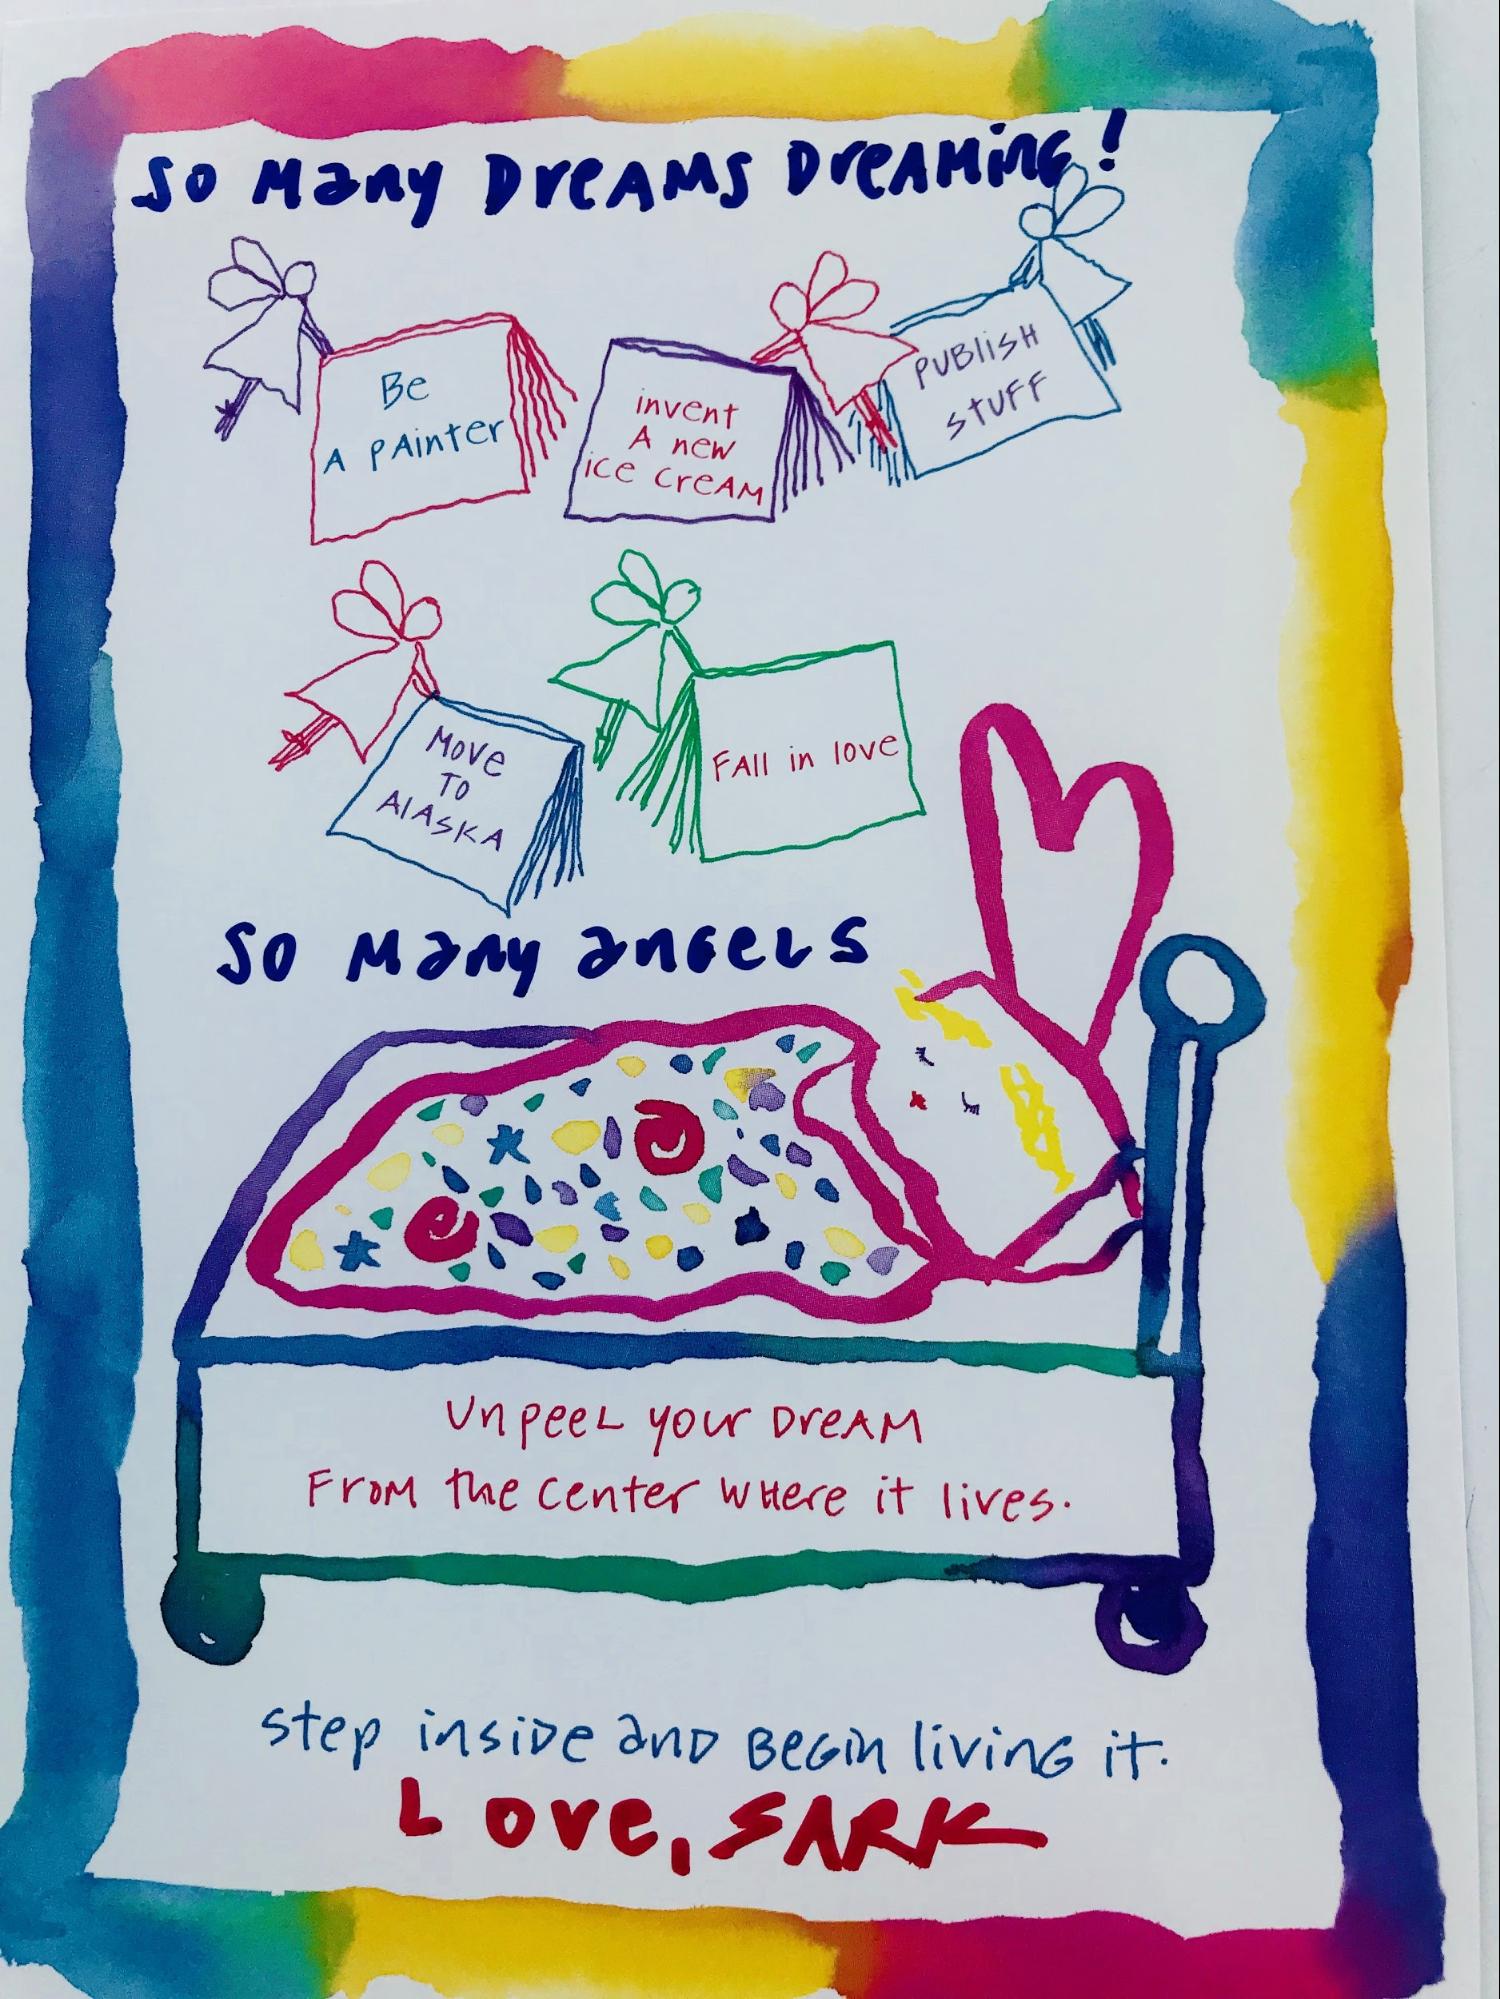 So Many Dreams Dreaming!
Be
A PAinter
invent
A new
ice creAM
PUBLiSH
STUFF
Move
TO
AlASKA
FAll in love
So Many angels
Unpeel your DreAM
From the center where it lives.
step inside and Begin living it.
Love, SARK